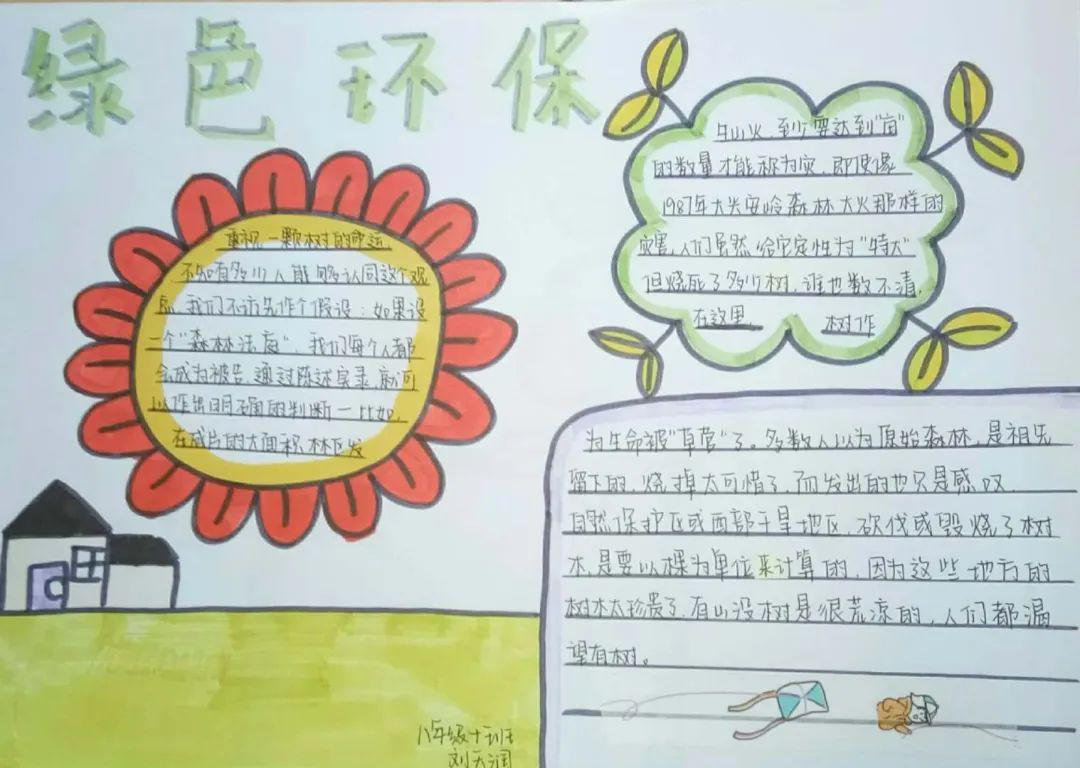 绿色环保
重视一颗树的命运
不知有多少人能够认同这个观
点,我们不访先作个假设:如果设
一个"森林法庭",我们每个人都
会成为被告,通过陈述实录,就可
以作出明确的判断一比如,
在成片的大面积林区发
生山火,至少要达到"亩"
的数量才能称为灾,即使像
1987年大兴安岭森林大火那样的
灾害,人们虽然给它定性为"特大"
但烧死了多少树,谁也数不清,
在这里, 树作
为生命被"草菅"了。多数人以为原始森林,是祖先
留下的,烧掉太可惜了,而发出的也只是感叹,
自然保护区或西部干旱地区,砍伐或毁烧了树
木,是要以棵为单位来计算的,因为这些地方的
树木太珍贵了,有山没树是很荒凉的,人们都漏
望有树。
八年级十班
刘天润